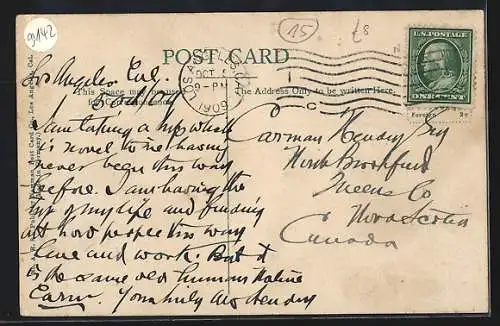 99142
15
£8
POST CARD
This Space may be used
for Correspondence
The Address Only to be written Here.
LOS ANGELES, CAL.
OCT
9-PM
1909
U.S. POSTAGE
ONE CENT
Los Angeles Cal.
I am taking a trip which
is novel to me having
never been this way
before. I am having the
trip of my life and finding
out how people this way
live and work. But it
is the same old human nature
Yours truly
Carman Hendry Esq
North Brookfield
Queens Co
Nova Scotia
Canada